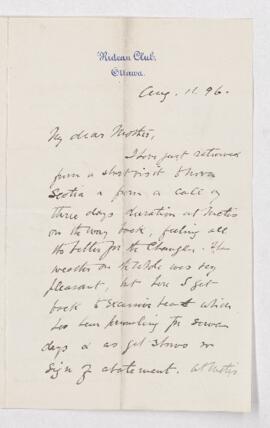 Rideau Club,
Ottawa.
Aug. 11. 96.
My dear Mother,
I have just returned
from a short visit to Nova
Scotia & from a call of
three days duration at Metis
on the way back, feeling all
the better for the change. The
weather on the whole was very
pleasant, but here I get
back to excessive heat which
has been prevailing for several
days & as yet shows no
sign of abatement. At Metis